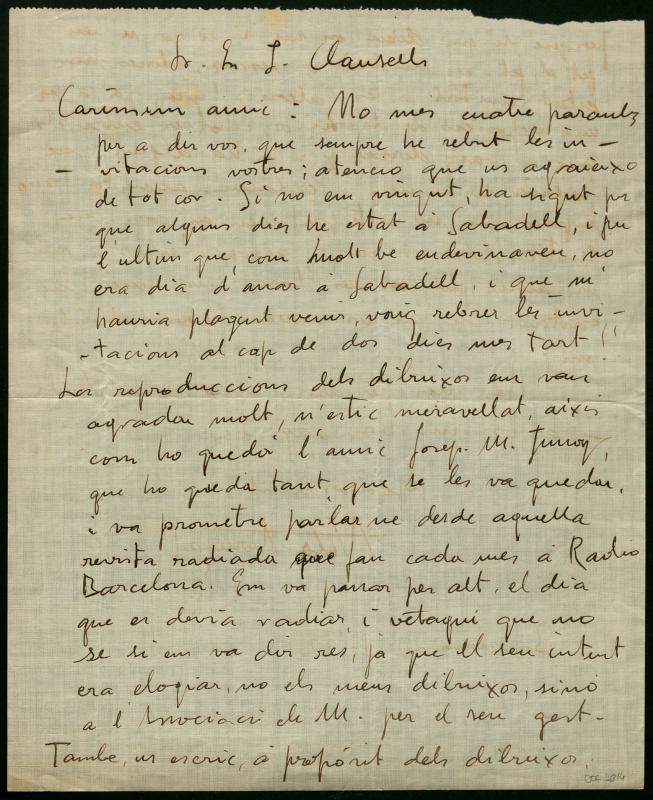 Sr. En J. Clausells
Caríssim amic: No mes cuatre paraules
per a dir vos, que sempre he rebut les in-
- vitacions vostres; atencio que us agraeixo
de tot cor. Si no em vingut, ha sigut per
que alguns dies he estat á Sabadell, i per
l'ultim que, com molt be endevinaveu, no
era dia d'anar á Sabadell, i que m'
hauria plasgut venir, vaig rebrer les invi-
-tacions al cap de dos dies mes tart!
Las reproduccions dels dibuixos em van
agradar molt, n'estic meravellat, aixis
com ho quedá l'amic Josep. M. Junoy,
que ho queda tant, que se les va quedar,
i va prometre parlar ne desde aquella
revista radiada que fan cada mes á Radio
Barcelona. Em va passar per alt, el dia
que es devia radiar, i vetaqui que no
se si em va dir res, ja que el seu intent
era elogiar, no els meus dibuixos, sinó
a l'Associació de M. per el seu gest-
Tambe, us escric, á propósit dels dibuixos,